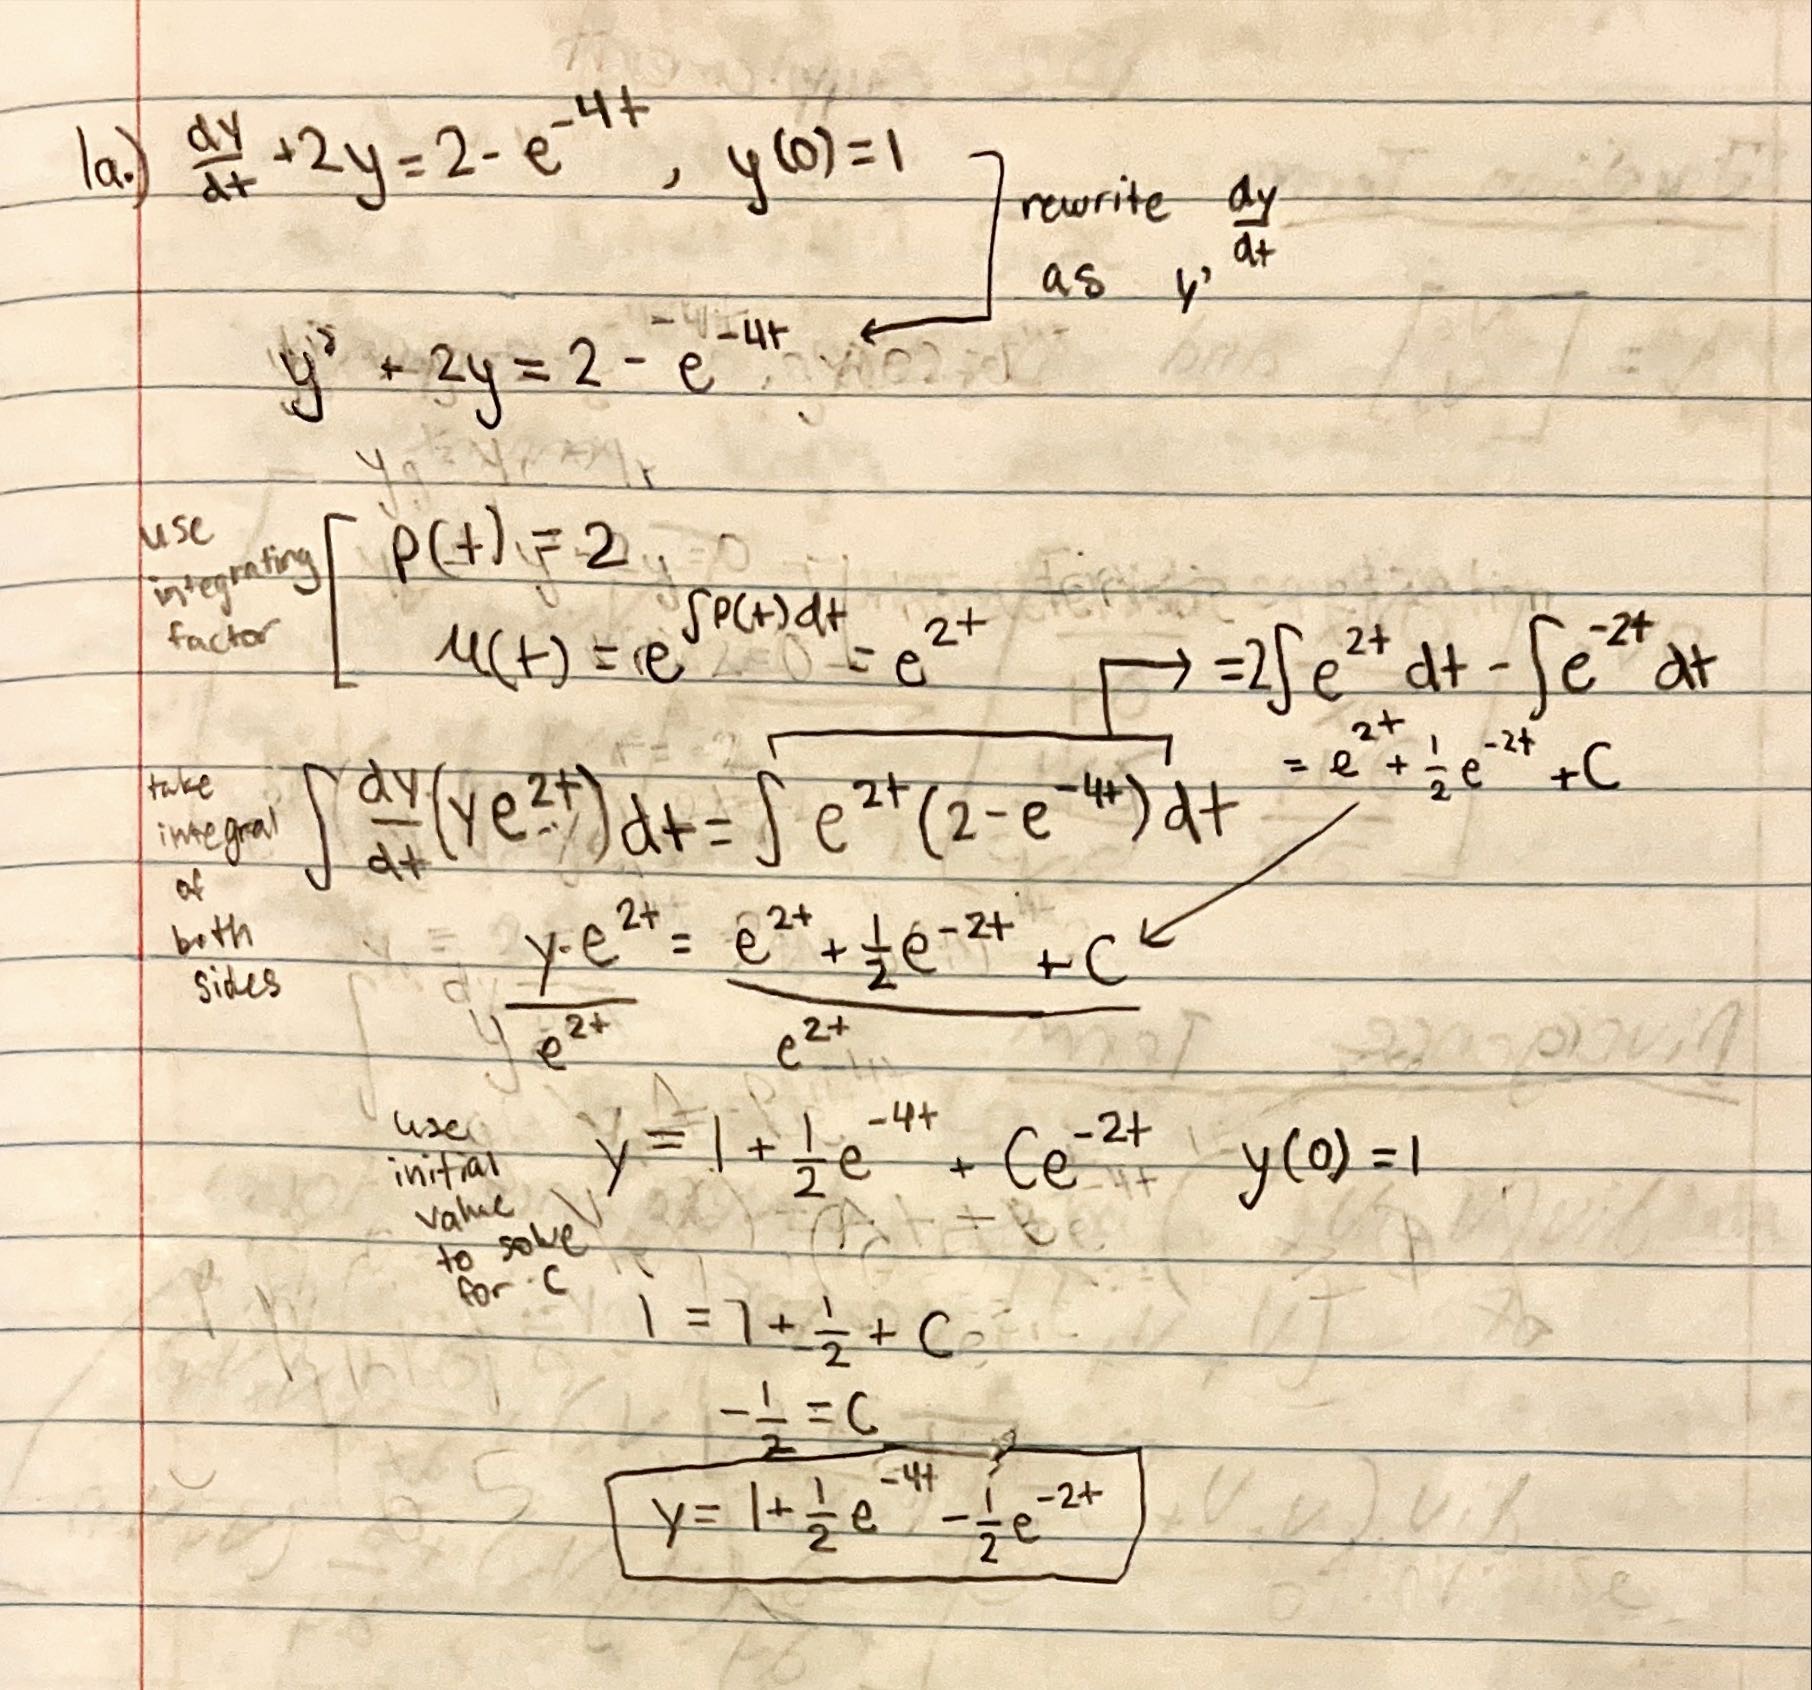 1a.) dy/dt + 2y = 2 - e^-4t , y(0) = 1
rewrite dy/dt
as y'
y' + 2y = 2 - e^-4t
use
integrating
factor
p(t) = 2
μ(t) = e^∫P(t)dt = e^2t
= 2∫e^2t dt - ∫e^-2t dt
= e^2t + 1/2 e^-2t + C
take
integral
of
both
sides
∫ dy/dt (ye^2t) dt = ∫ e^2t (2 - e^-4t) dt
y·e^2t = e^2t + 1/2 e^-2t + C
e^2t e^2t
use
initial
value
to solve
for C
y = 1 + 1/2 e^-4t + Ce^-2t y(0) = 1
1 = 1 + 1/2 + C
-1/2 = C
y = 1 + 1/2 e^-4t - 1/2 e^-2t